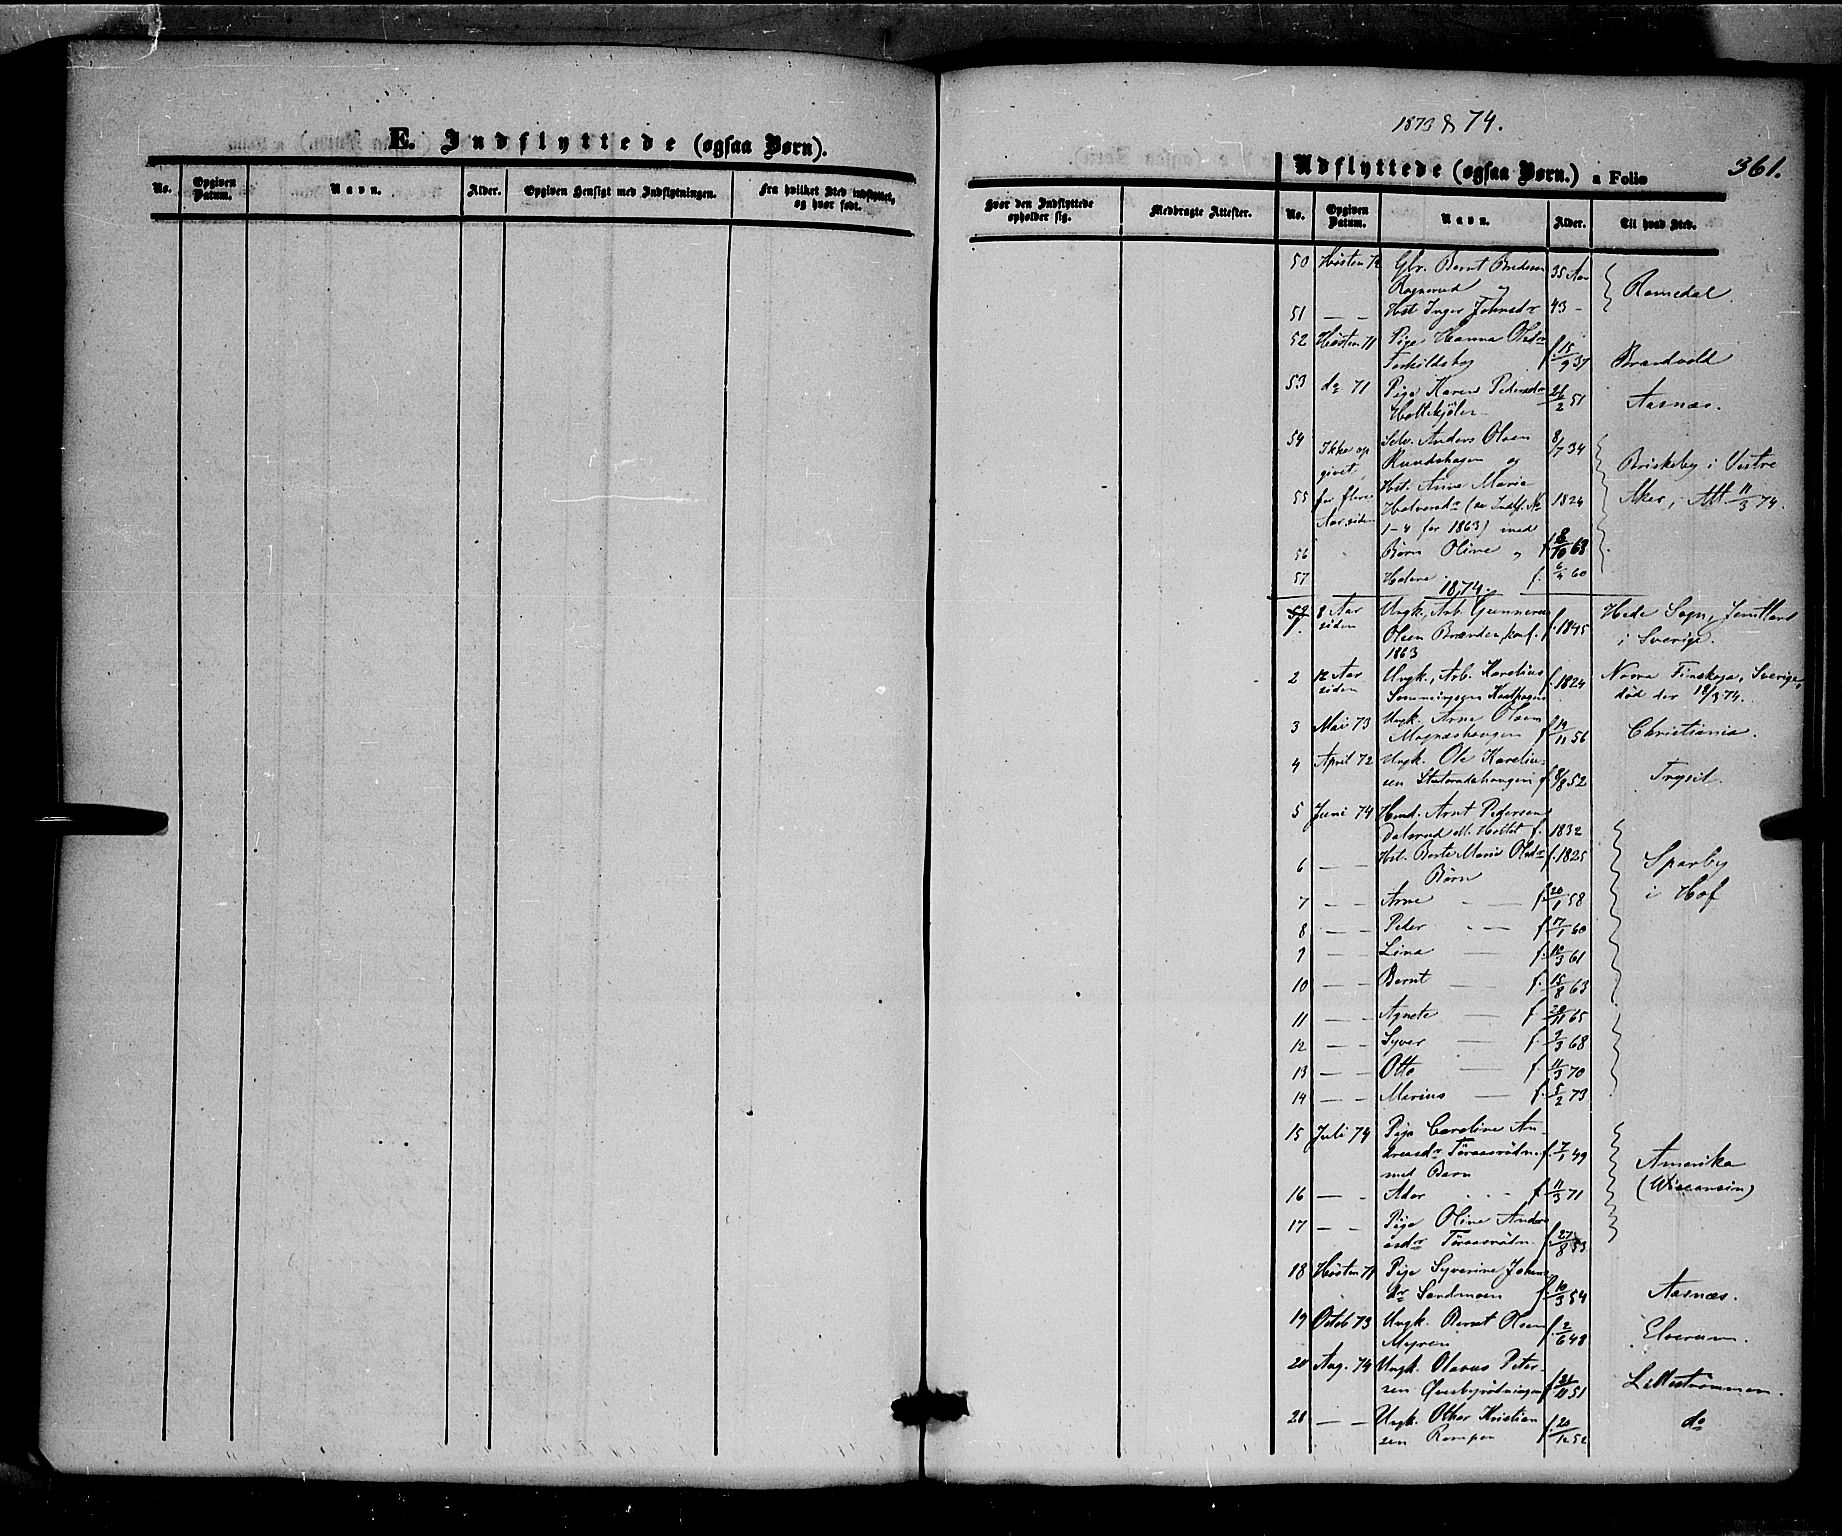 1873 & 74.
E. Indflyttede (ogsaa Børn).
No. Opgiven Datum. Navn. Alder. Opgiven Hensigt med Indflytningen. Fra hvilket Sted indflyttet, og hvor født.
Udflyttede (ogsaa Børn.) a Folio 361.
Hvor den Indflyttede opholder sig. Medbragte Attester. No. Opgiven Datum. Navn. Alder. Til hvad Sted.
50 Høsten 72 Gbr. Bernt 35 Aar
og Romedal.
51 — — Hst Inger Johnsdr 43 -
52 Høsten 71 Pige Hanna Olsdr
f. 15/9 37 Brandvold
53 do 71 Pige Karen Pedersdr 26/2 51 Aasnæs.
54 Ikke op Selv. Anders Olsen 8/7 34
givet, Rundshagen og Briskeby i Vestre
55 for flere Hst. Anne Maria
Aar siden Halvorsdr (se Indfl. No 1824 Aker, Att 11/3 74.
1-4 for 1863) med
56 Børn Oline og f. 8/10 63
57 f. 60
1874.
1. 8 Aar Ungk., Arb. Gunnerus Hede Sogn, Jemtland
siden Olsen Brænden, konf. f. 1845 i Sverige.
1863
2 12 Aar Ungk., Arb. Karelius f. 1824 Norra Finskoga, Sverige,
siden død der 18/3 74.
3 Mai 73 Ungk. Arne Olsen
f. 19/11 56 Christiania.
4 April 72 Ungk. Ole Kareliu-
sen f. 8/8 52 Trysil.
5 Juni 74 Hmd. Arnt Pedersen
f. 1832
6 — — Hst. Berte Marie Olsdr f. 1825 Sparby
Børn
7 — — Arne — f. 20/1 58 i Hof
8 — — Peder — — f. 17/1 60
9 — — Lina — f. 12/3 61
10 — — Bernt — f. 15/8 63
11 — — Agnete — f. 28/11 65
12 — — Syver — f. 7/3 68
13 — — Otto — f. 11/3 70
14 — — Marius — f. 5/2 73
15 Juli 74 Pige Caroline An-
dreasdr f. 7/1 49 Amerika
med Barn
16 — - f. 11/3 71 (Wisconsin)
17 — - Pige Oline Andre
asdr f. 27/8 53
18 Høsten 71 Pige Syverine Johans
dr Sandmoen f. 10/3 54 Aasnæs.
19 Octob 73 Ungk. Bernt Olsen
Myren f. 2/6 48 Elverum.
20 Aug. 74 Ungk. Olavus Peter-
sen f. 21/11 51 Lillestrømmen.
21 — — Ungk. Othar Kristian
sen Rompen f. 20/12 52 do